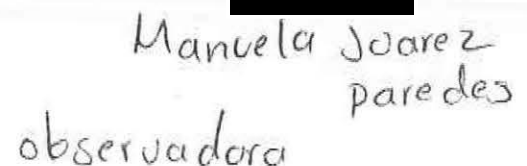 Manuela Juarez
paredes
observadora